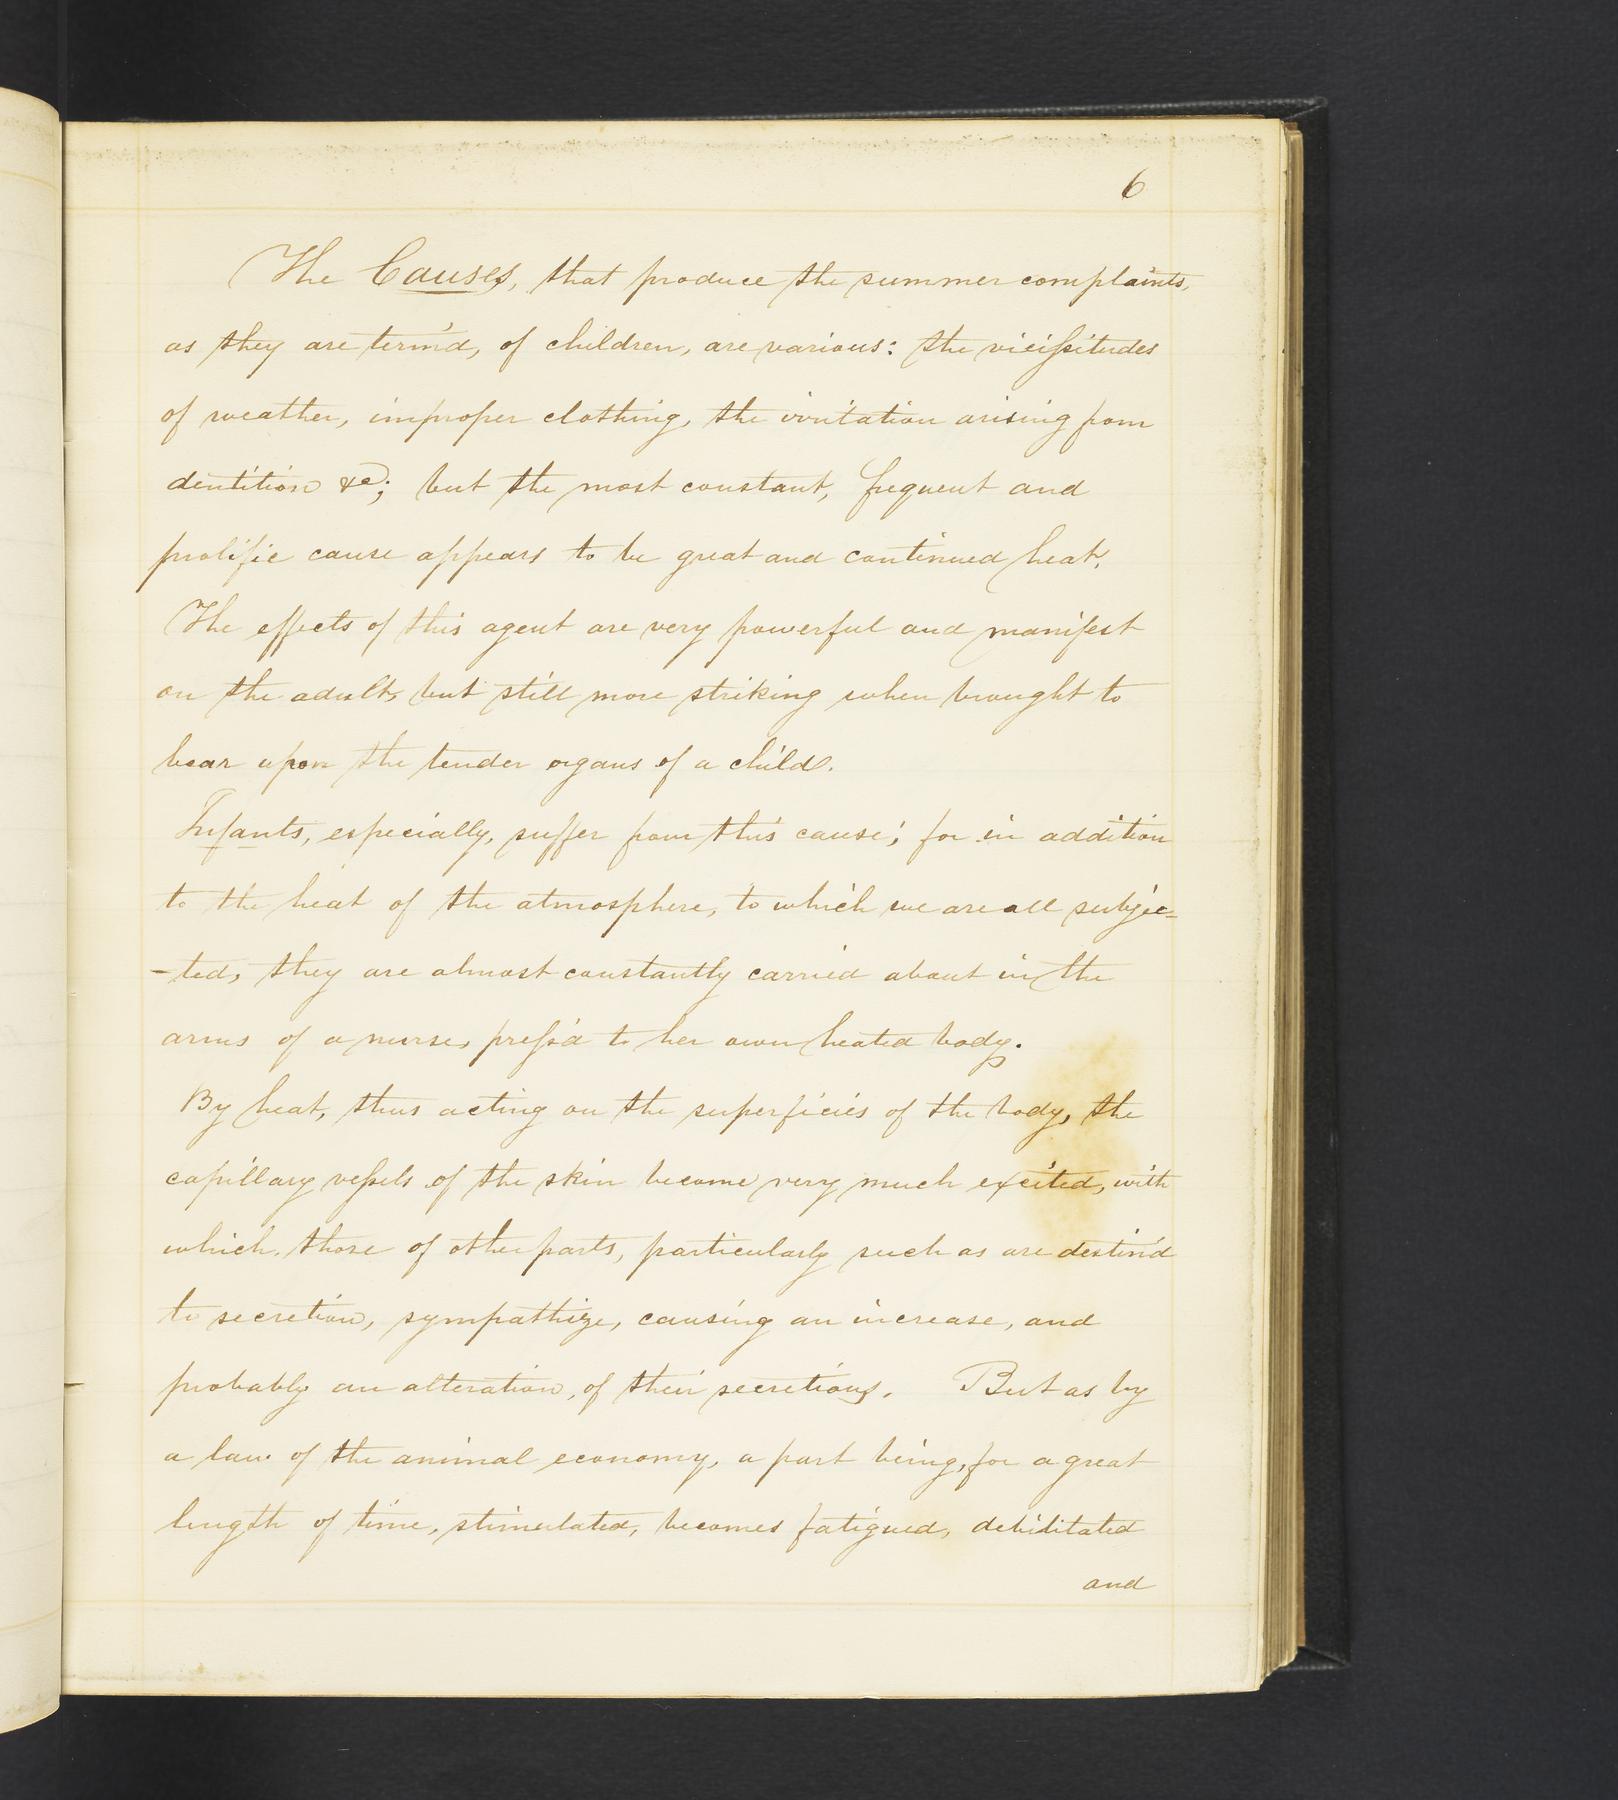 6
The Causes, that produce the summer complaints,
as they are term'd, of children, are various: the viciſsitudes
of weather, improper clothing, the irritation arising from
dentition &c; but the most constant, frequent and
prolific cause appears to be great and continued heat.
The effects of this agent are very powerful and manifest
on the adult, but still more striking when brought to
bear upon the tender organs of a child.
Infants, especially, suffer from this cause; for in addition
to the heat of the atmosphere, to which we are all subjec=
-ted, they are almost constantly carried about in the
arms of a nurse, preſs'd to her own heated body.
By heat, thus acting on the superficies of the body, the
capillary veſsels of the skin become very much excited, with
which, those of other parts, particularly such as are destin'd
to secretion, sympathize, causing an increase, and
probably an alteration, of their secretions. But as by
a law of the animal economy, a part being, for a great
length of time, stimulated, becomes fatigued, debilitated
and